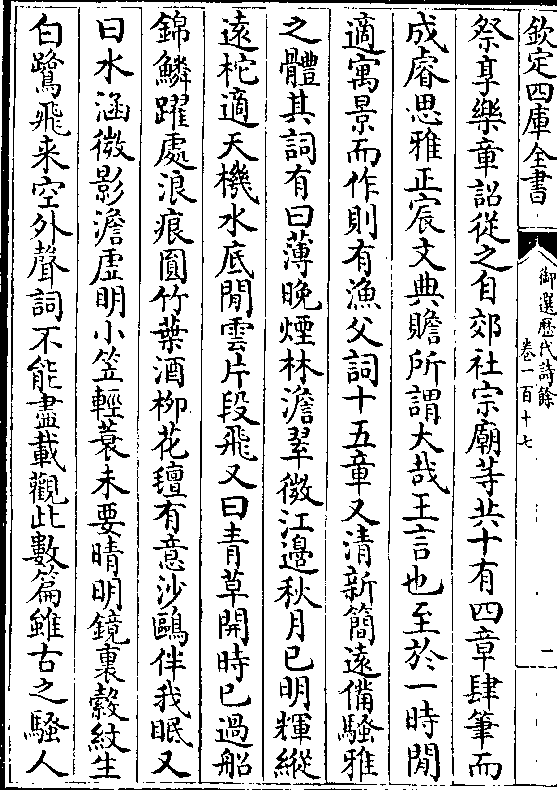 欽定四庫全書
御選歷代詩餘
卷一百十七
一
祭享樂章詔從之自郊社宗廟等共十有四章肆筆而
成睿思雅正宸文典贍所謂大哉王言也至於一時閒
適寓景而作則有漁父詞十五章又清新簡遠備騷雅
之體其詞有曰薄晚煙林澹翠微江邊秋月已明輝縱
遠柁適天機水底閒雲片段飛又曰青草開時已過船
錦鱗躍處浪痕圓竹葉酒柳花氊有意沙鷗伴我眠又
曰水涵微影澹虛明小笠輕蓑未要晴明鏡裏縠紋生
白鷺飛来空外聲詞不能盡載觀此數篇雖古之騷人